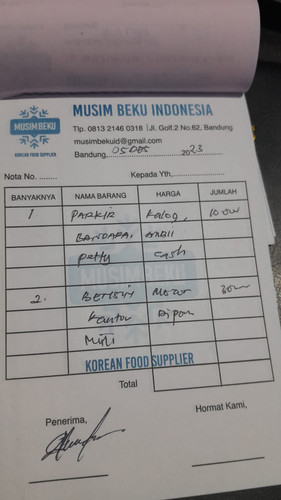 MUSIM BEKU INDONESIA
MUSIM BEKU
KOREAN FOOD SUPPLIER
Tlp. 0813 2146 0318 | Jl. Golf.2 No.62, Bandung
musimbekuid@gmail.com
Bandung, 05 DES 2023
Nota No. ........
Kepada Yth,........................
BANYAKNYA NAMA BARANG HARGA JUMLAH
1 PARKIR
BANDARA, Ambil
petty cash
2. BENSIN Motor
Kantor Dipan
MUSIM BEKU
KOREAN FOOD SUPPLIER
Total
Penerima,
Hormat Kami,